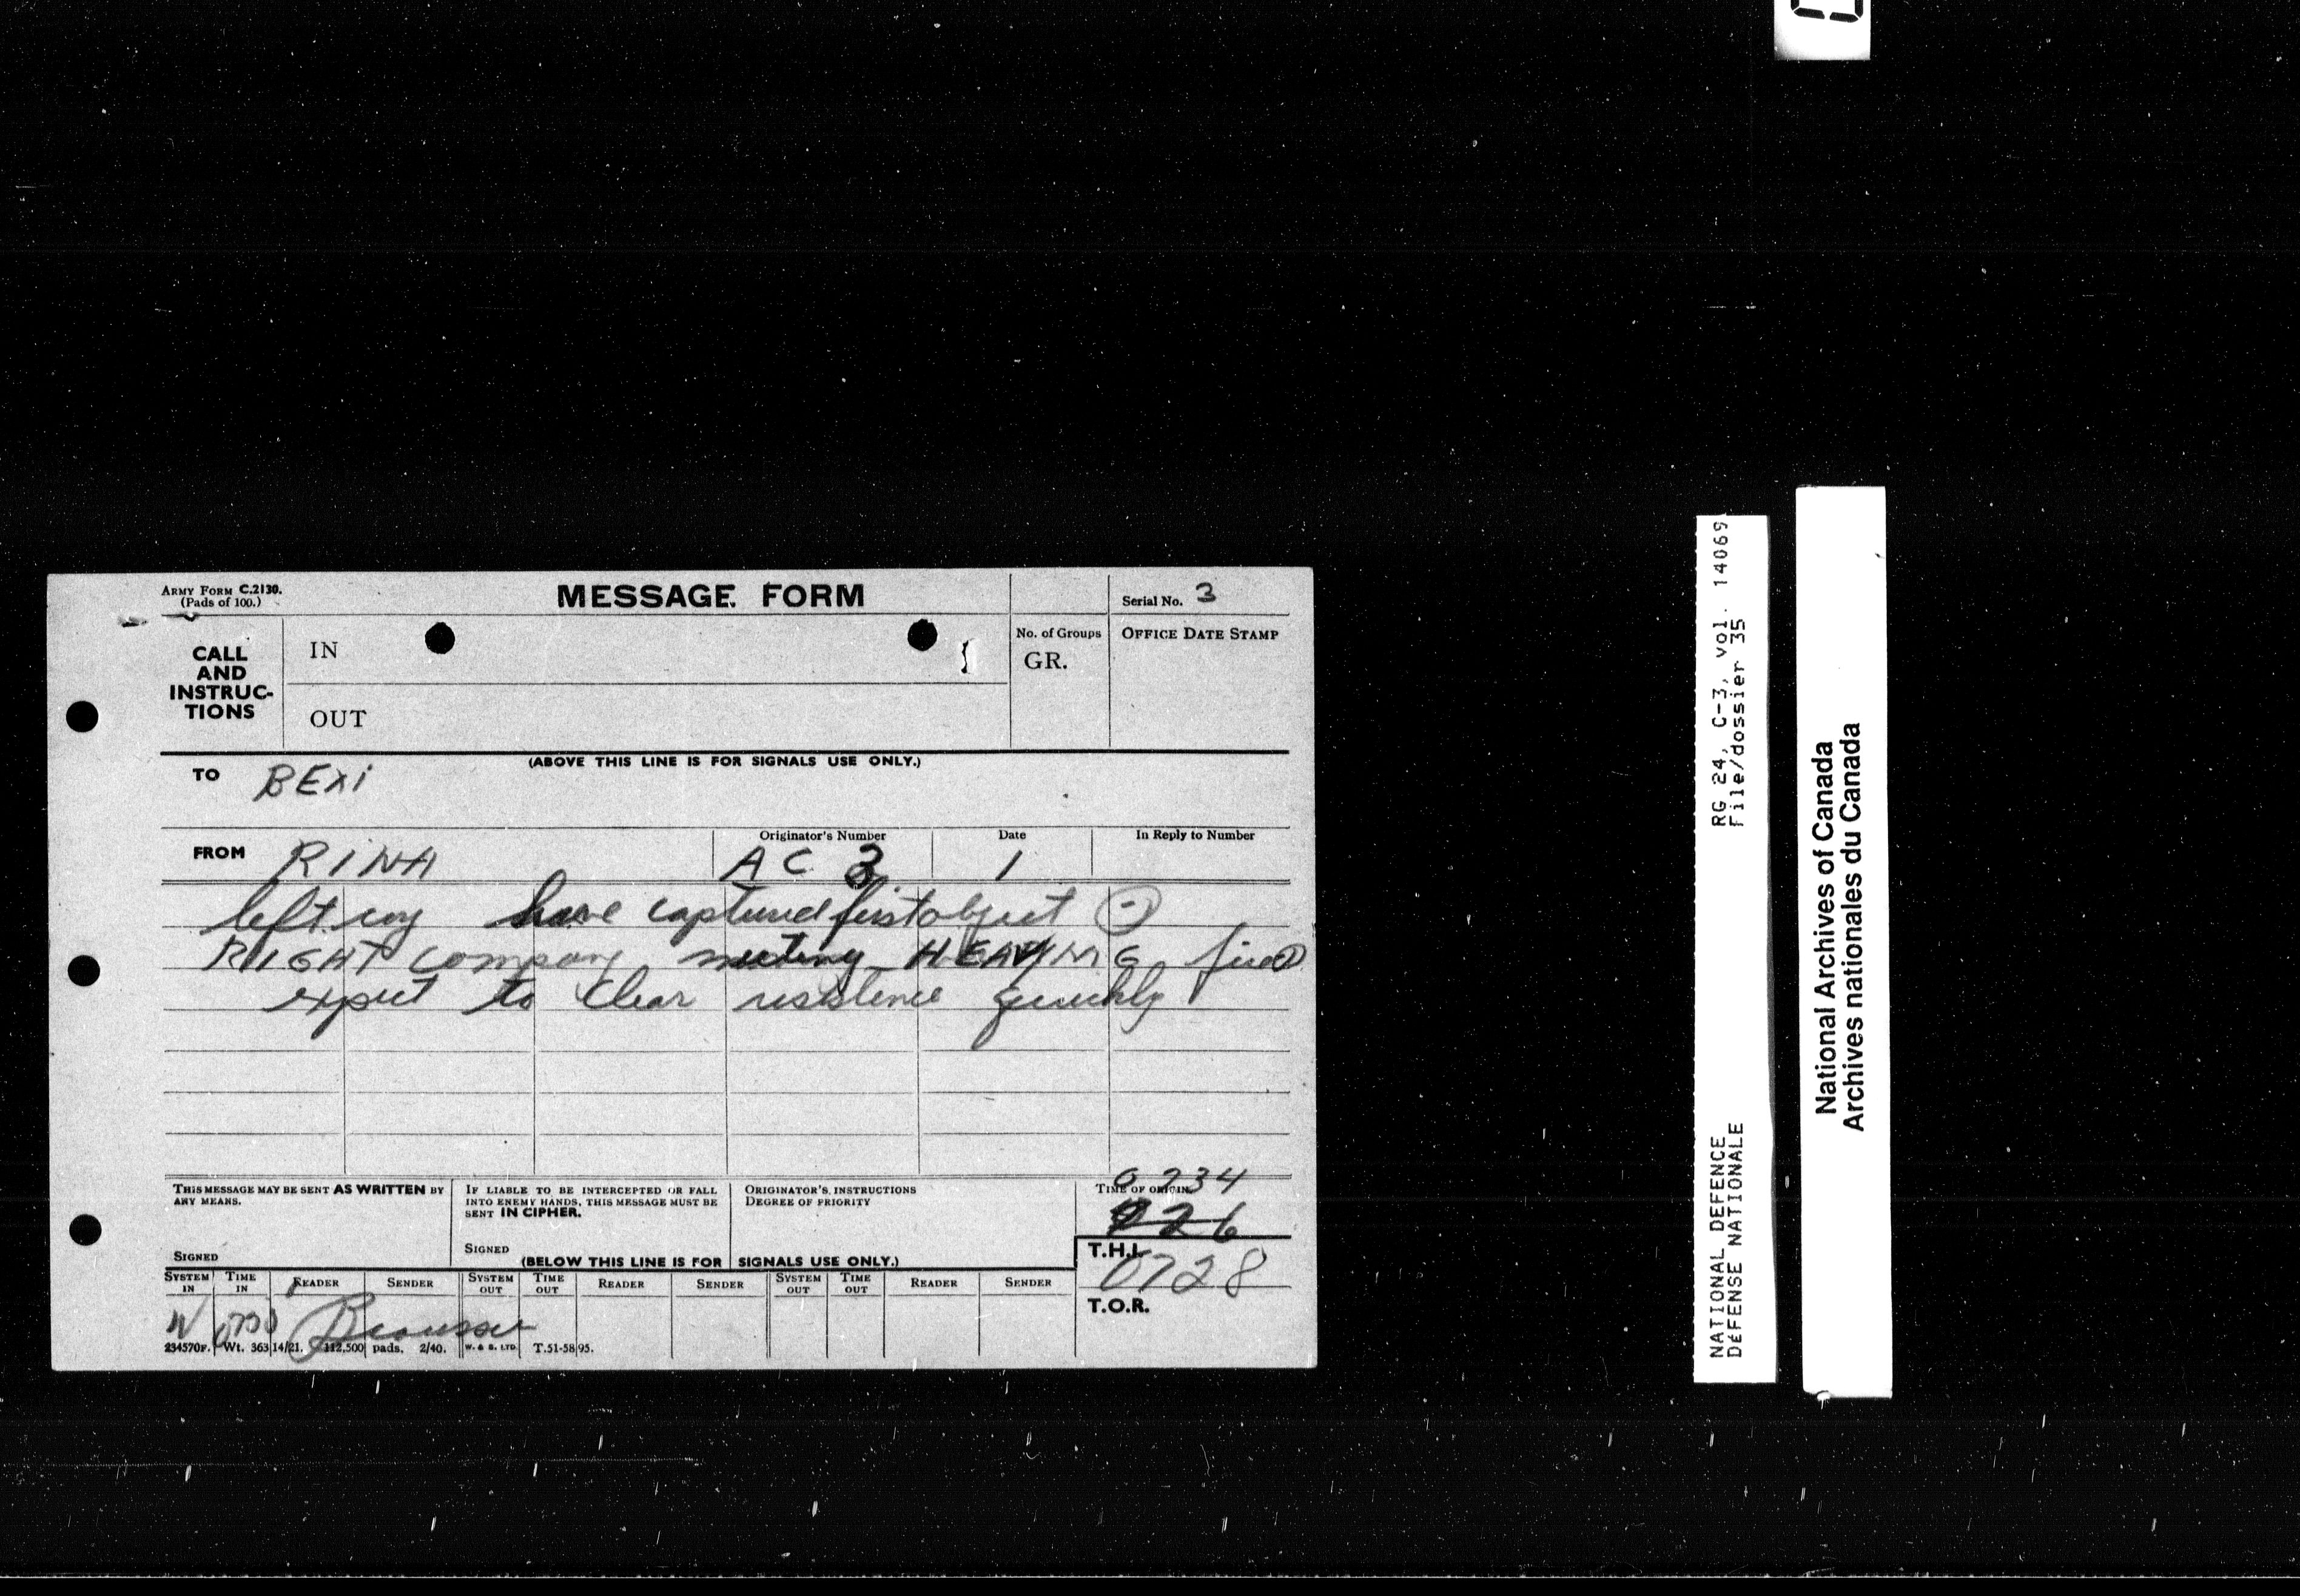 ARMY FORM C.2130.
(Pads of 100.)
MESSAGE FORM
Serial No. 3
CALL AND INSTRUC-TIONS
IN
OUT
No. of Groups
GR.
OFFICE DATE STAMP
(ABOVE THIS LINE IS FOR SIGNALS USE ONLY.)
TO BEXI
FROM RINA
Originator's Number
AC 3
Date
1
In Reply to Number
left coy have captured first object
RIGHT company meeting HEAVY MG fire
expect to clear resistence quickly
THIS MESSAGE MAY BE SENT AS WRITTEN BY
ANY MEANS.
SIGNED
IF LIABLE TO BE INTERCEPTED OR FALL
INTO ENEMY HANDS, THIS MESSAGE MUST BE
SENT IN CIPHER.
SIGNED
ORIGINATOR'S INSTRUCTIONS
DEGREE OF PRIORITY
TIME OF ORIGIN
T.H.I.
0728
T.O.R.
(BELOW THIS LINE IS FOR SIGNALS USE ONLY.)
SYSTEM IN TIME IN READER SENDER SYSTEM OUT TIME OUT READER SENDER SYSTEM OUT TIME OUT READER SENDER
W
234570F. Wt. 36314/21. 112,500 pads. 2/40. W. & S. LTD. T.51-5895.
RG 24, C-3, vol. 14069
File/dossier 35
NATIONAL DEFENCE
DÉFENSE NATIONALE
National Archives of Canada
Archives nationales du Canada